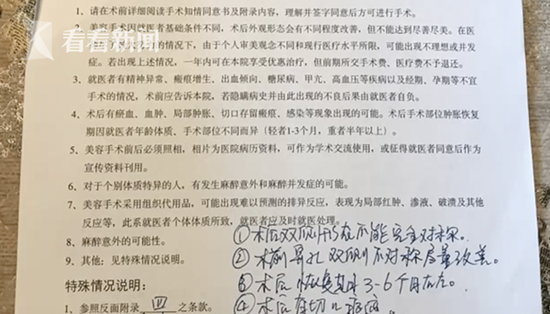 看看新闻
1、请在术前详细阅读手术知情同意书及附录内容，理解并签字同意后方可进行手术。
2、美容手术因就医者基础条件不同，术后外观形态会有不同程度改善，但不能达到尽善尽美。在医
情况下，由于个人审美观念不同和现行医疗水平所限，可能出现不理想或并发
症。若出现上述情况，一年内可在本院享受优惠治疗，但前期所交手术费、医疗费不予退还。
3、就医者有精神异常、瘢痕增生、出血倾向、糖尿病、甲亢、高血压等疾病以及经期、孕期等不宜
手术的情况，术前应告诉本院，若隐瞒病史并由此出现的不良后果由就医者自负。
4、术后有瘀血、血肿、局部肿胀、切口存留瘢痕、感染等现象出现的可能。术后手术部位肿胀恢复
期因就医者年龄体质、手术部位不同而异（轻者1-3个月，重者半年以上）。
5、美容手术前后必须照相，相片为医院病历资料，可作为学术交流使用，或征得就医者同意后作为
宣传资料刊用。
6、对于个别体质特异的人，有发生麻醉意外和麻醉并发症的可能。
7、美容手术采用组织代用品，可能出现难以预测的排异反应，表现为局部红肿、渗液、破溃及其他
反应等，此系就医者个体体质所致，就医者应及时就医处理。
8、麻醉意外的可能性。
9、其他：见特殊情况说明。
①术后双侧 不能完全对称。
②术前鼻孔双侧不对称尽量改善。
特殊情况说明：
③术后恢复期3-6个月左右。
1、参照反面附录 四 之条款。
④术后有切口瘢痕。